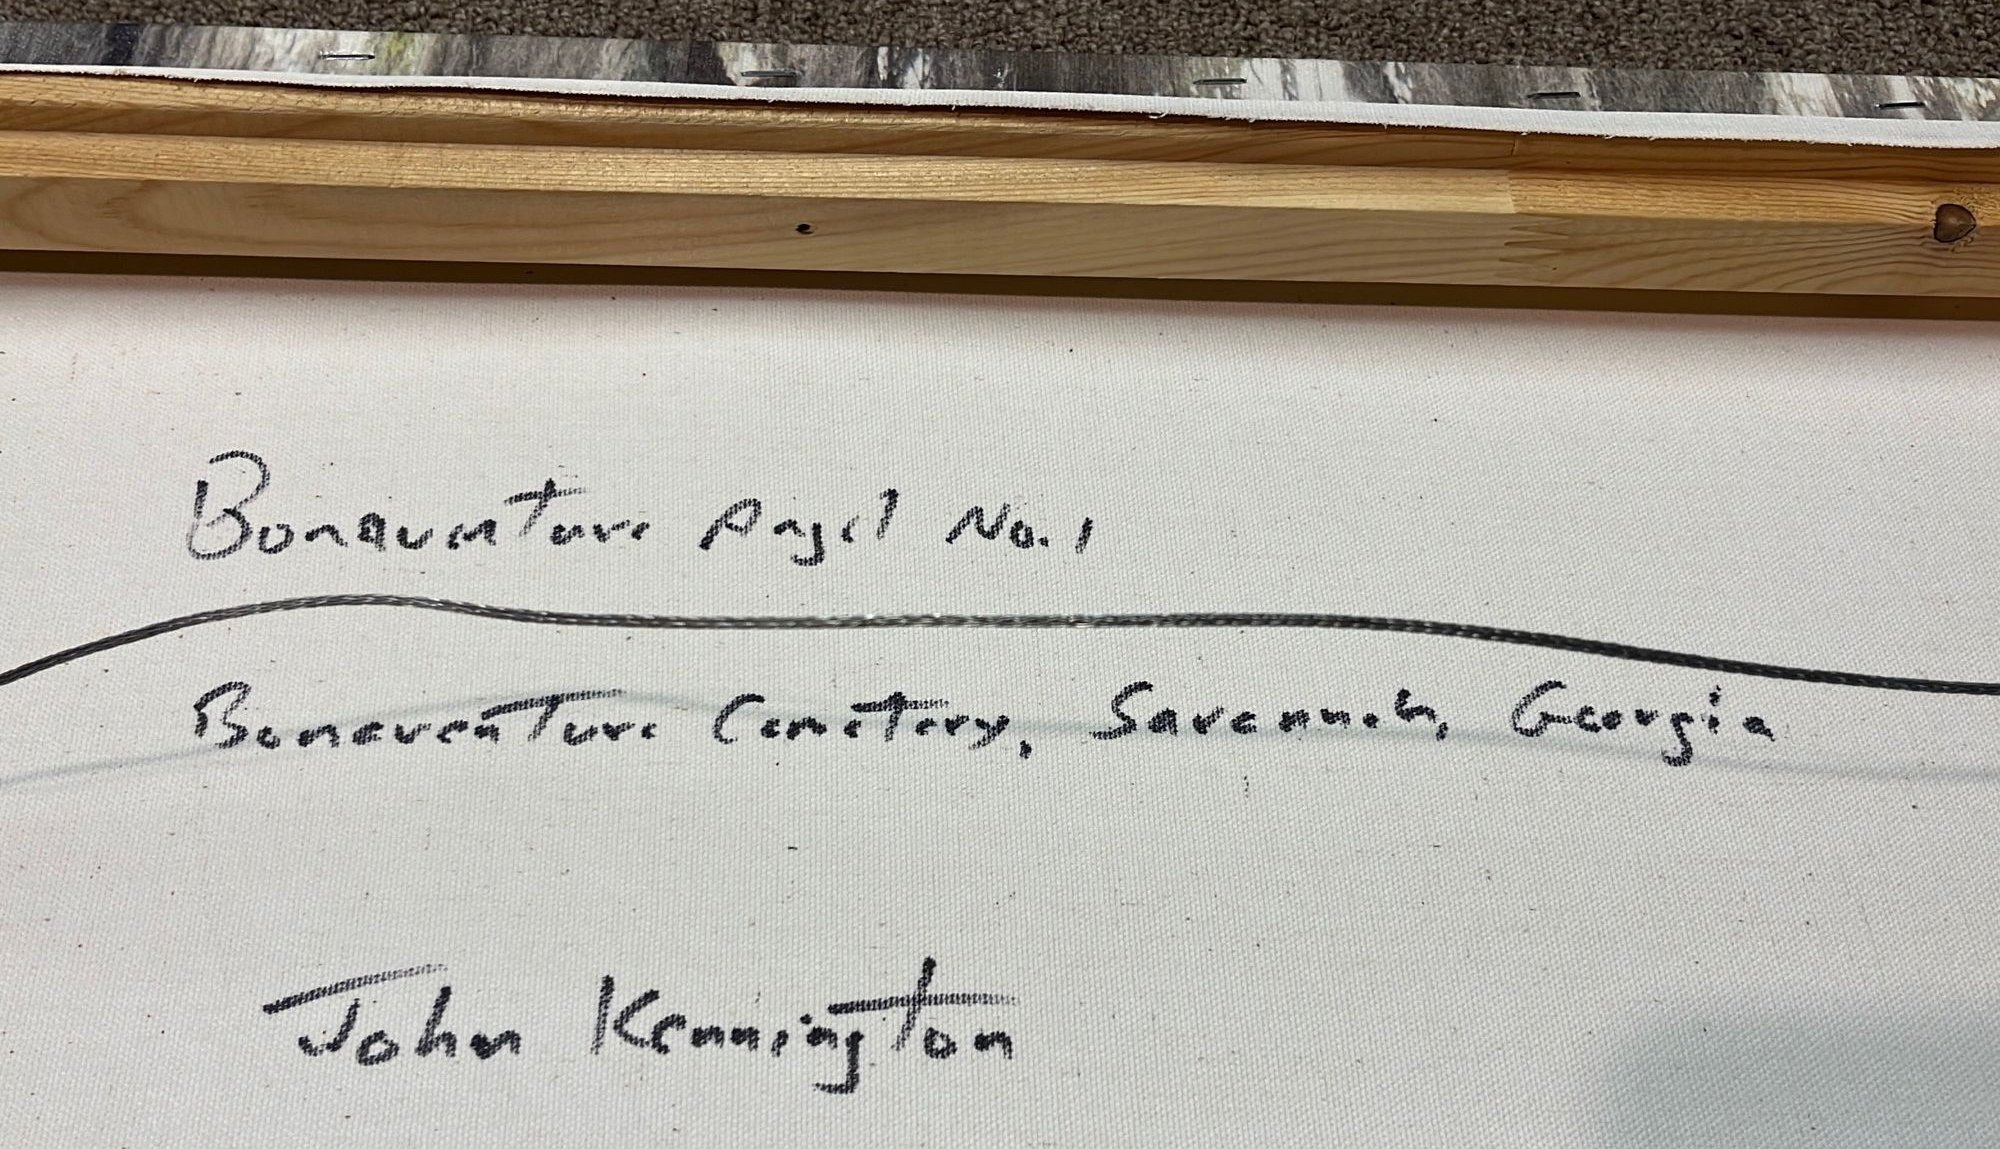 Bonaventure Angel No. 1
Bonaventure Cemetery, Savannah, Georgia
John Kennington